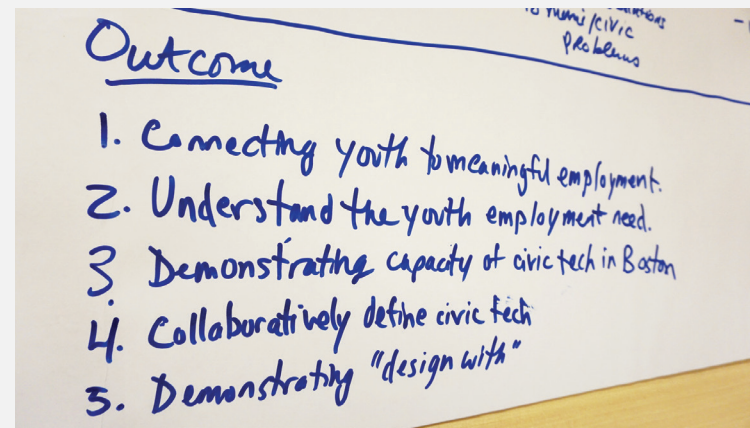 to memis/civic
problems
Outcome
1. Connecting youth to meaningful employment.
2. Understand the youth employment need.
3. Demonstrating capacity of civic tech in Boston
4. Collaboratively define civic tech
5. Demonstrating "design with"